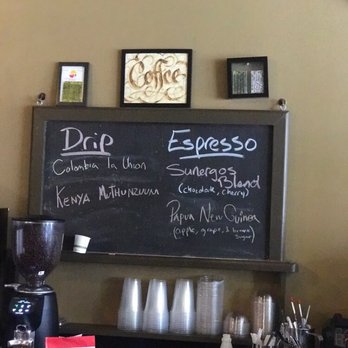 Coffee
Drip
Colombia La Union
Kenya Muthunzuuni
Espresso
Sunergos
Blend
(chocolate, cherry)
Papua New Guinea
(apple, grape, & brown
sugar)